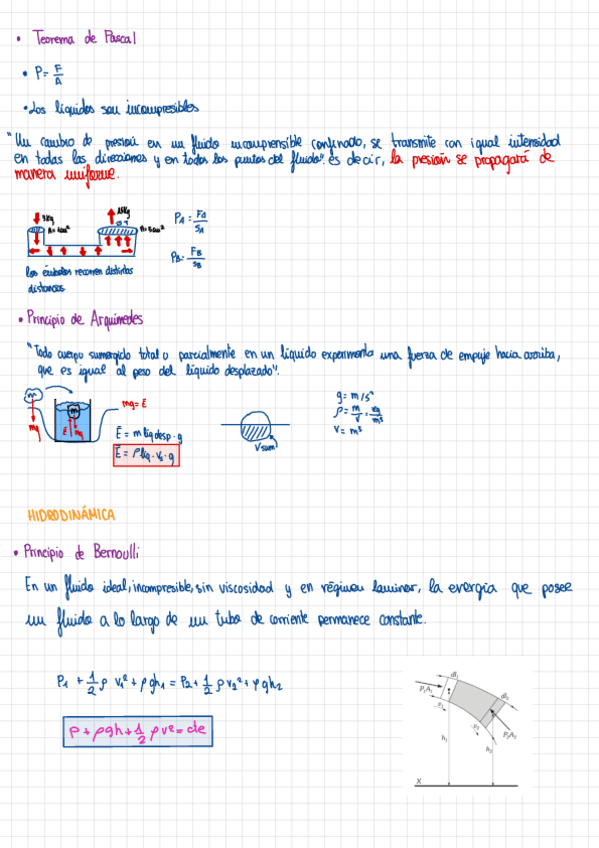 • Teorema de Pascal
• P = F/A
• Los líquidos son incompresibles
"Un cambio de presión en un fluido incomprensible confinado, se transmite con igual intensidad
en todas las direcciones y en todos los puntos del fluido". es decir, la presión se propagará de
manera uniforme.
PA = FA/SA
PB = FB/SB
los émbolos recorren distintas
distancias
• Principio de Arquímedes
"Todo cuerpo sumergido total o parcialmente en un líquido experimenta una fuerza de empuje hacia arriba,
que es igual al peso del líquido desplazado".
m
mg
m
E
mg
mg = E
E = m líq desp · g
E = ρ líq · Vs · g
V sum
g = m/s²
ρ = m/v = kg/m³
V = m³
HIDRODINÁMICA
• Principio de Bernoulli
En un fluido ideal, incompresible, sin viscosidad y en régimen laminar, la energía que posee
un fluido a lo largo de un tubo de corriente permanece constante.
P₁ + 1/2 ρ v₁² + ρgh₁ = P₂ + 1/2 ρ v₂² + ρgh₂
P + ρgh + 1/2 ρv² = cte
dl₁
P₁A₁
v₁
dl₂
v₂
P₂A₂
h₁
h₂
X